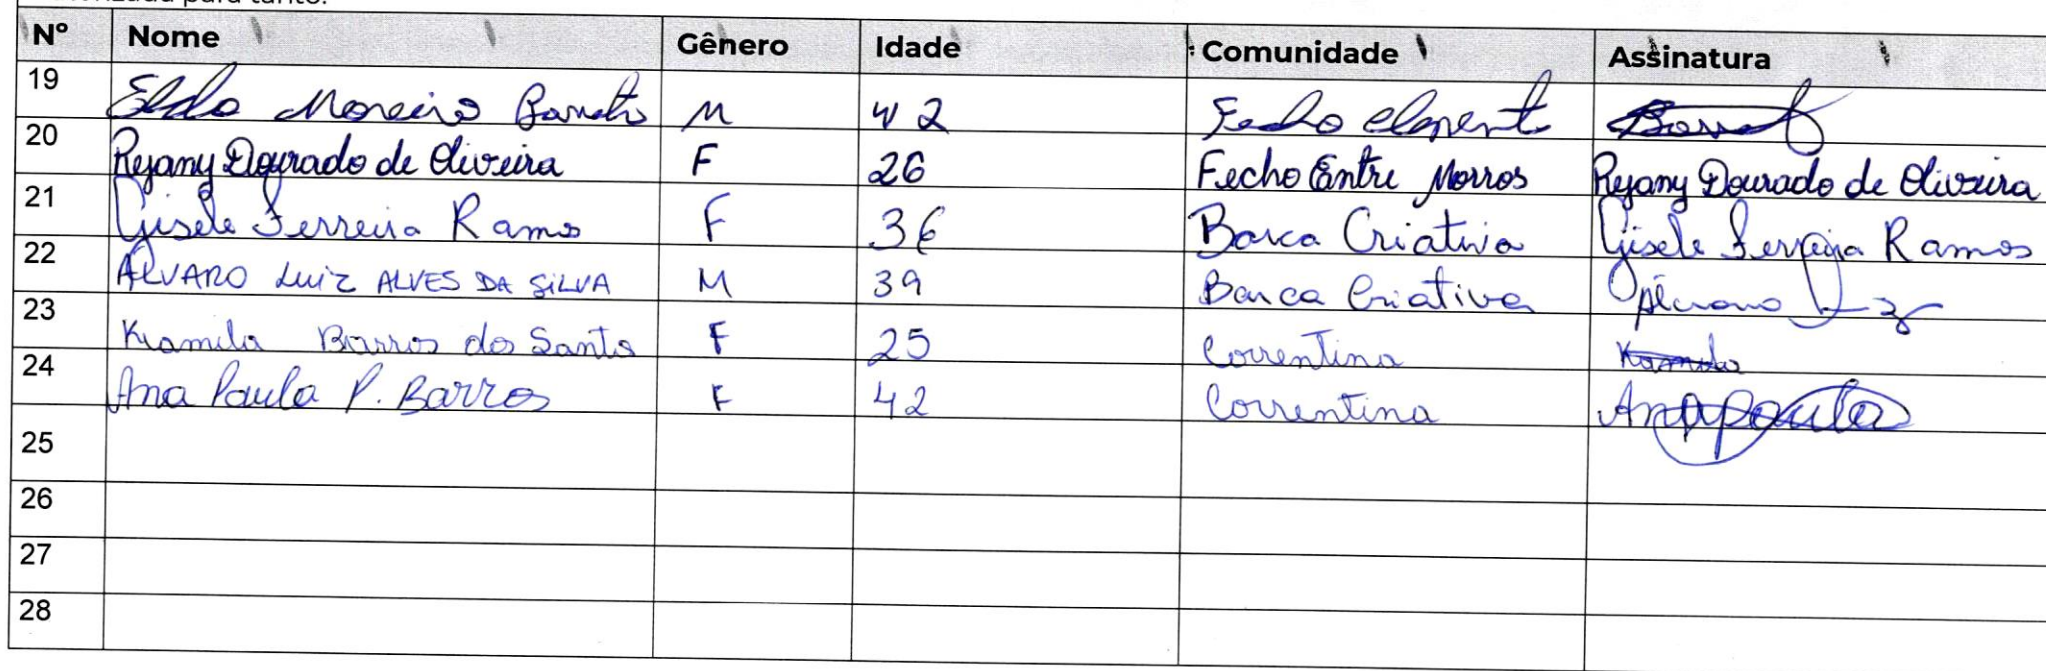 para tanto.
Nº Nome Gênero Idade Comunidade Assinatura
19 Eldo Moreira Barreto M 42 Fecho Clemente
20 Rejany Dourado de Oliveira F 26 Fecho Entre Morros Rejany Dourado de Oliveira
21 Gisele Ferreira Ramos F 36 Barca Criativa Gisele Ferreira Ramos
22 ALVARO LUIZ ALVES DA SILVA M 39 Barca Criativa
23 Kamila Barros dos Santos F 25 Correntina Kamila
24 Ana Paula P. Barros F 42 Correntina Ana paula
25
26
27
28